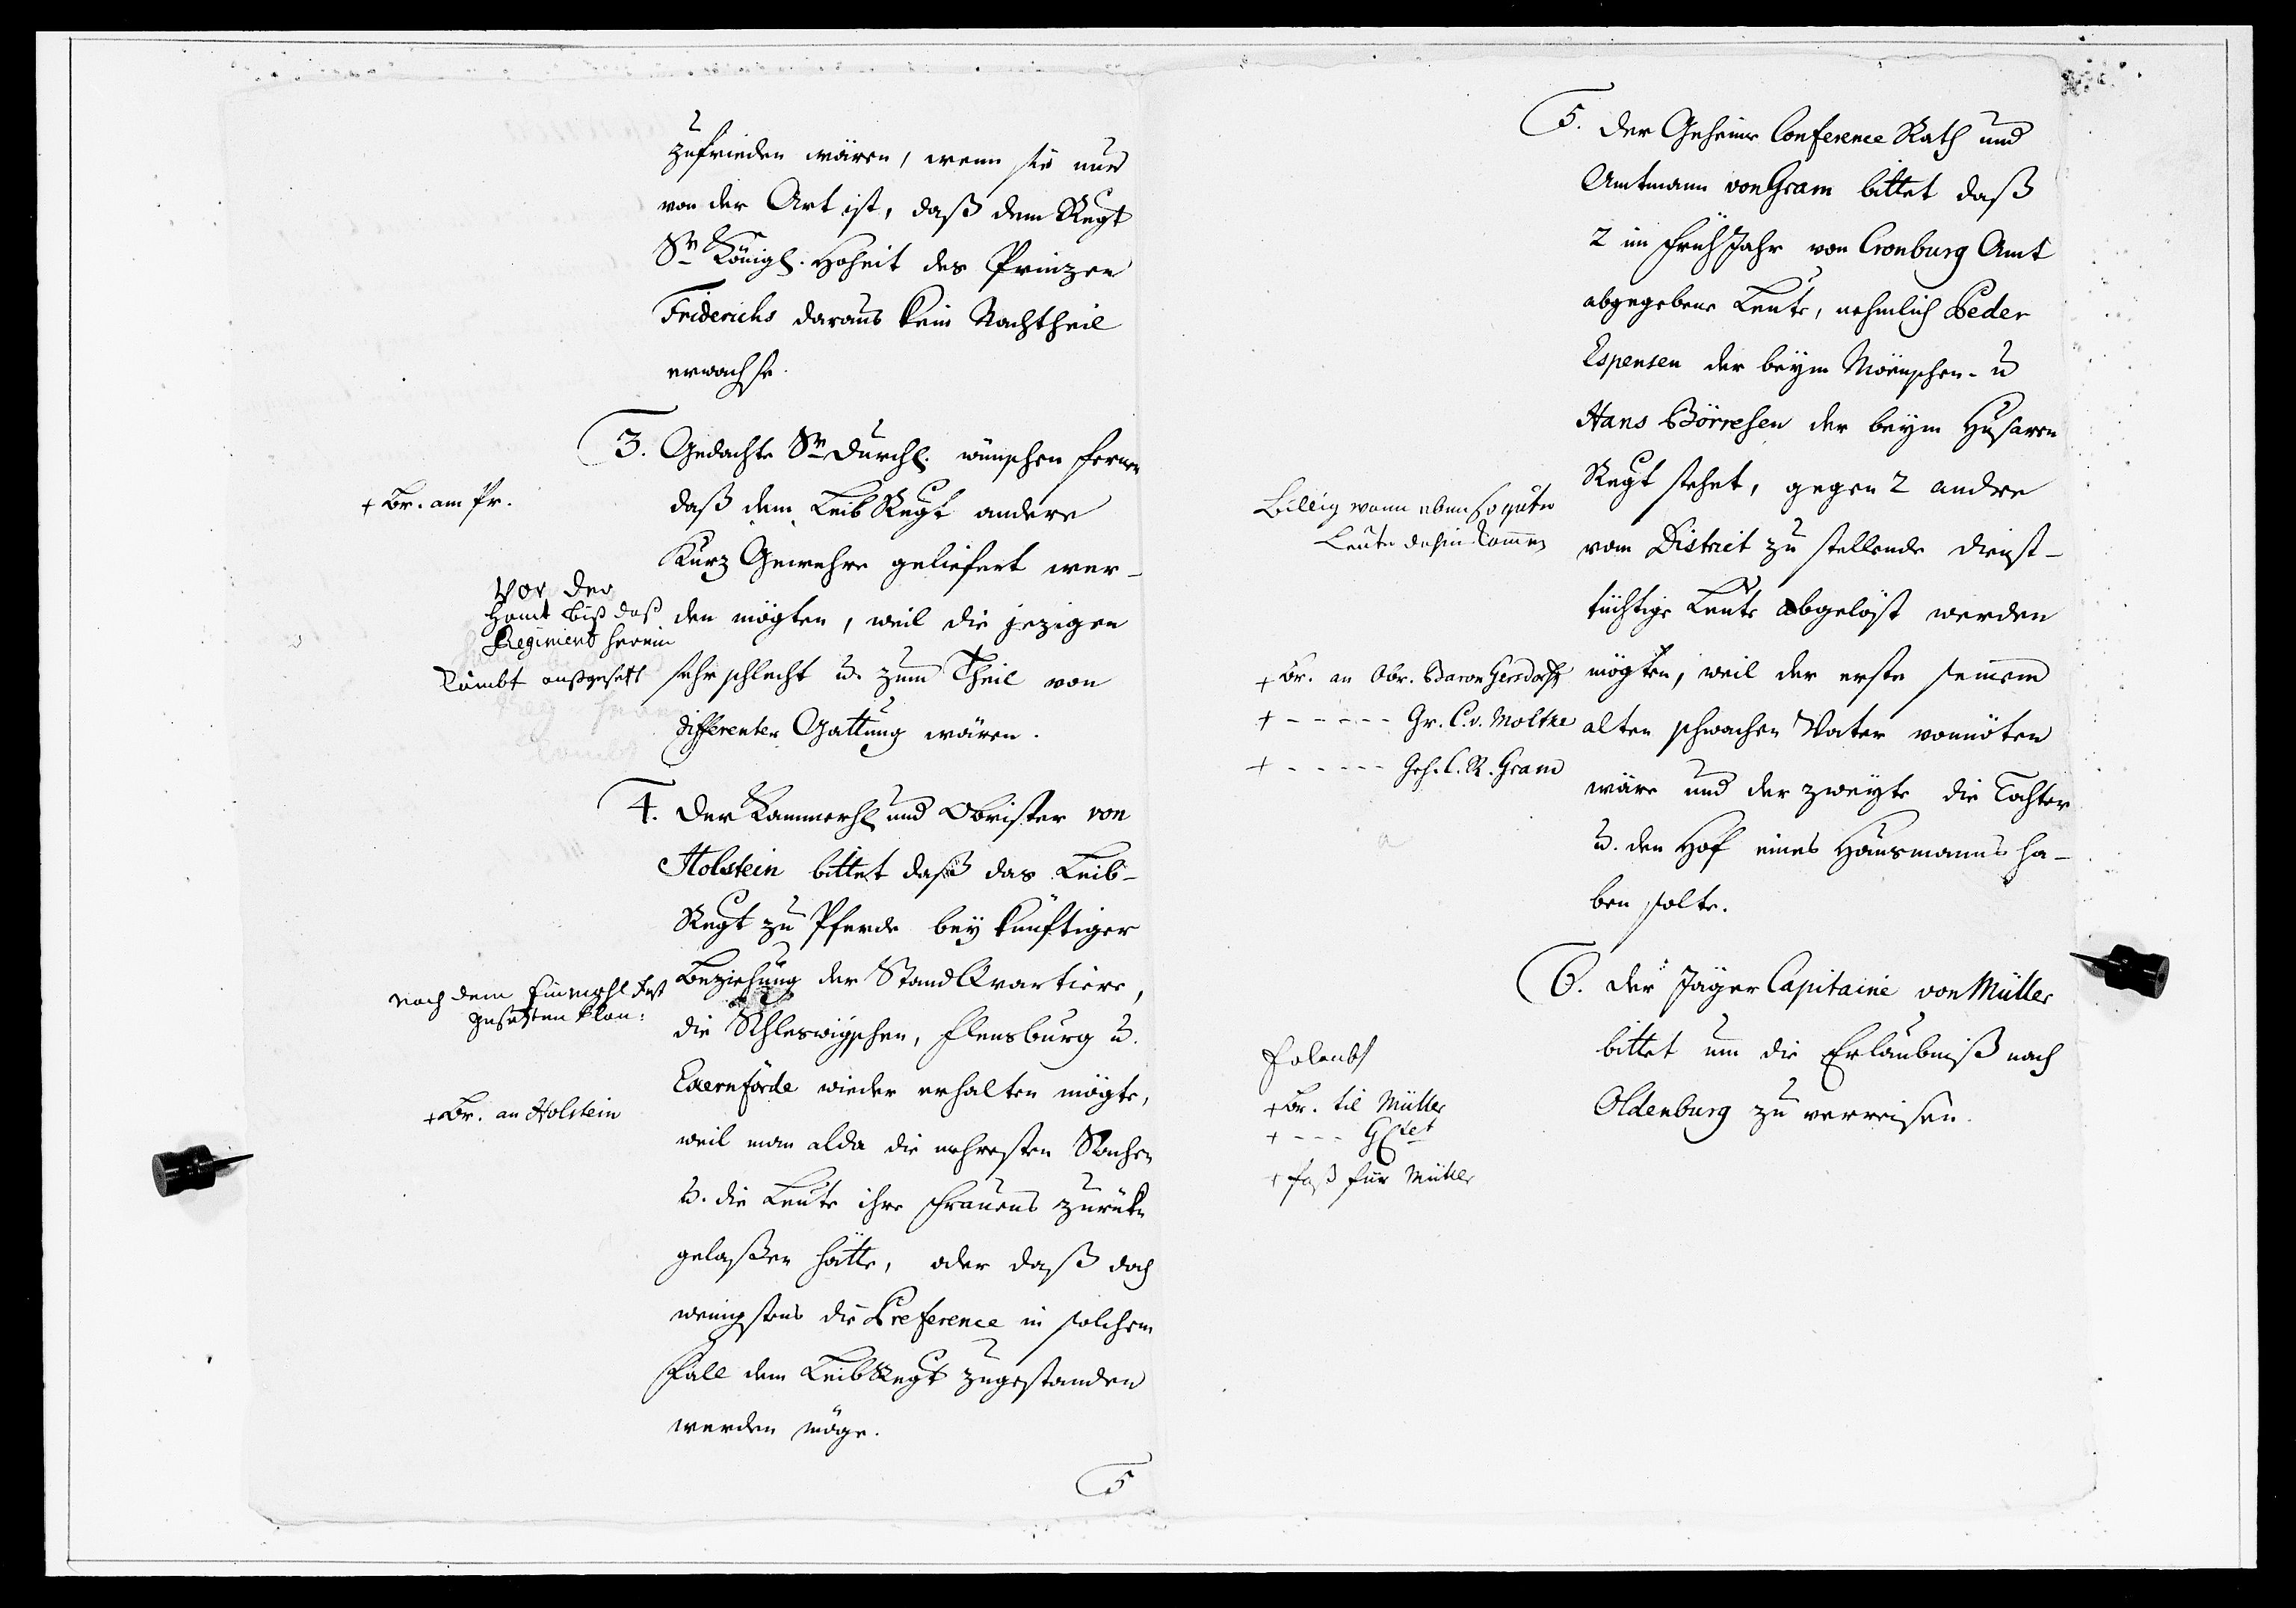 zufrieden wären, wenn sie nur
von der Art ist, daß dem Regt
Sr Königl. Hoheit des Prinzen
Friderichs daraus kein Nachtheil
erwachse.
3. Gedachte Sr Durchl. wünschen ferner
daß dem Leib Regt andere
Kurz Gewehre geliefert wer-
den mögten, weil die jezigen
sehr schlecht u. zum Theil von
differenter Gattung wären.
+ Br. am Pr.
Vor der
Hand biß daß
Regiment herein
Kömbt außgesetzt
4. Der Kammerh und Obrister von
Holstein bittet daß das Leib-
Regt zu Pferde bey künftiger
Beziehung der StandQvartiere,
die Schleswigschen, Flensburg u.
Ekernförde wieder erhalten mögte,
weil man alda die mehresten Sachen
u. die Leute ihre Frauens zurük
gelaßen hätte, oder daß doch
wenigstens die Preference in solchem
Fall dem LeibRegt zugestanden
werden möge.
nach dem Einmahl fest
gesetzten Plan:
+ Br. an Holstein
5
5. Der Geheime Conference Rath und
Amtmann von Gram bittet daß
2 im FrühJahr von Cronburg Amt
abgegebene Leute, nehmlich Peder
Espensen der beym Möenschen- u
Hans Börresen der beym Husaren
Regt stehet, gegen 2 andre
vom District zu stellende dienst-
tüchtige Leute abgelöst werden
mögten, weil der erste seinem
alten schwachen Vater vonnöten
wäre und der zweyte die Tochter
u. den Hof eines Hausmanns ha-
ben solte.
Billig wann eben so gute
Leute dahin kommen
+ Br. an Obr. Baron Gersdorff
+ - - - - - Gr. C. v. Moltke
+ - - - - - Geh. C. R. Gram
6. Der Jäger Capitaine von Müller
bittet um die Erlaubniß nach
Oldenburg zu verreisen.
Erlaubt
+ Br. til Müller
+ - - -
+ Paß für Müller